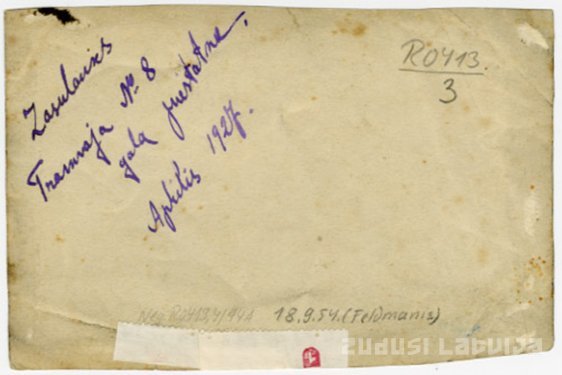 Zasulauks
Tramvaja № 8
gala piestatne.
Aprilis 1927.
R0413.
3
18.9.54. (Feldmanis)
zudusi Latvija